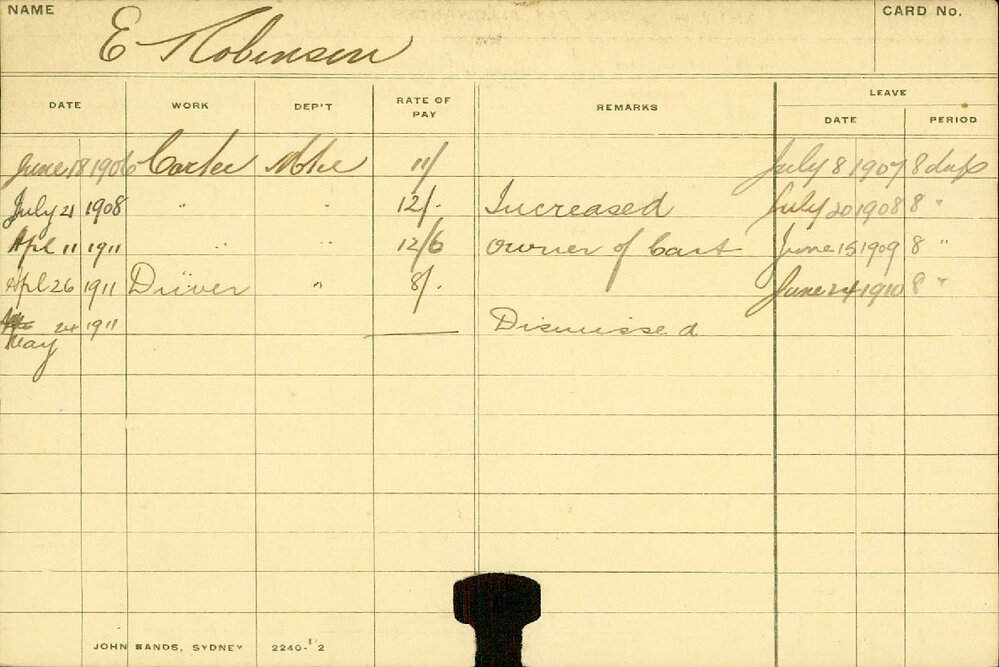 NAME E Robinson CARD No.
LEAVE
DATE WORK DEP'T RATE OF PAY REMARKS DATE PERIOD
June 18 1906 Carter 11/ July 8 1907 8 days
July 21 1908 " " 12/. Increased July 20 1908 8 "
Apl 11 1911 " " 12/6 owner of Cart June 15 1909 8 "
Apl 26 1911 Driver " 8/. June 24 1910 8 "
May 24 1911 — Dismissed
JOHN SANDS, SYDNEY 2240-12